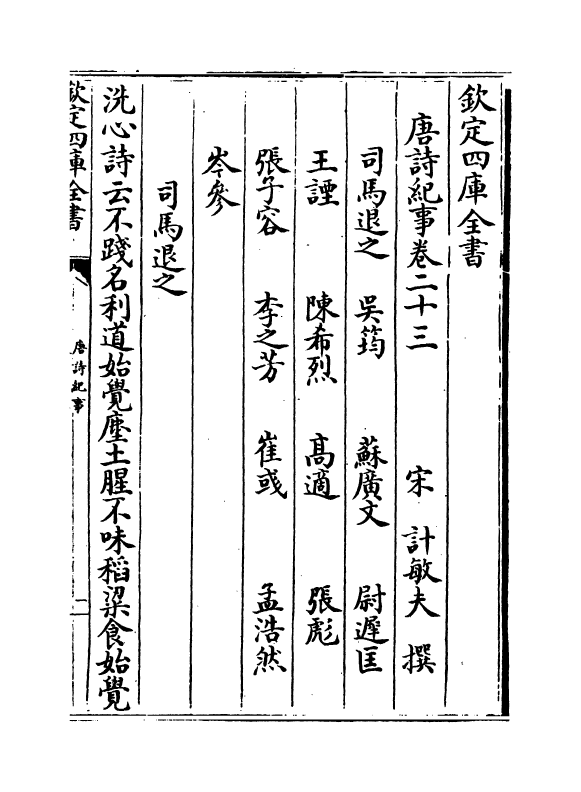 欽定四庫全書
唐詩紀事卷二十三　　　宋　計敏夫　撰
司馬退之　吳筠　蘇廣文　尉遲匡
王諲　陳希烈　高適　張彪
張子容　李之芳　崔彧　孟浩然
岑參
司馬退之
洗心詩云不踐名利道始覺塵土腥不味稻粱食始覺
欽定四庫全書　唐詩紀事　一